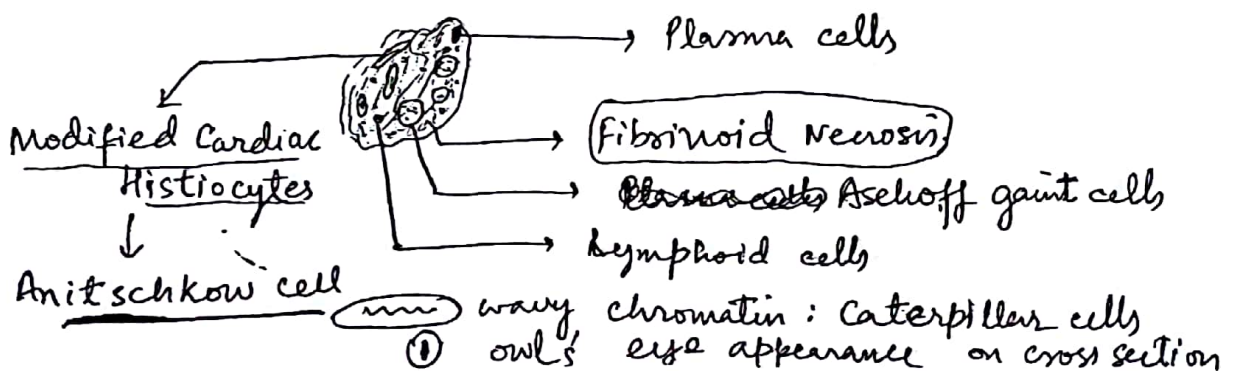 Plasma cells
Modified Cardiac
Histiocytes
Fibrinoid Necrosis
Aschoff gaint cells
Lymphoid cells
Anitschkow cell
wavy chromatin : Caterpillar cells
owl's eye appearance on cross section